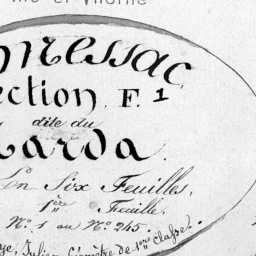 et Vilaine
nessac,
ection F. 1
dite du
arda.
En Six Feuilles,
1ère Feuille.
N.º 1 au N.º 245.
Géomètre de 1ère classe.